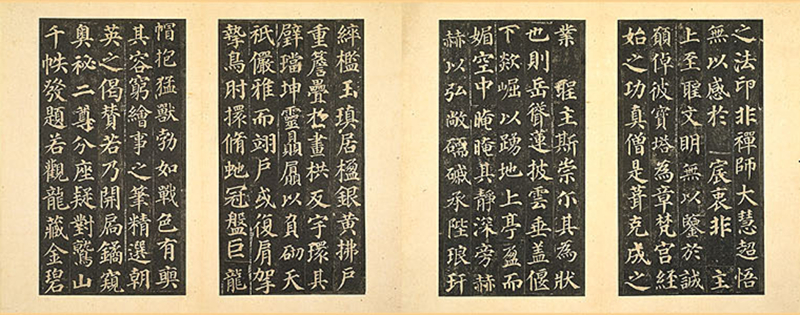 之法印非禪師大慧超悟
無以感於 宸衷非 主
上至聖文明無以鑒於誠
願倬彼寶塔為章梵宮經
始之功真僧是葺克成之
業 聖主斯崇尔其為狀
也則岳聳蓮披雲垂盖偃
下欻崛以踴地上亭盈而
媚空中晻晻其靜深旁赫
赫以弘敞礝碱承陛琅玕
綷檻玉瑱居楹銀黃拂戶
重簷疊於畫栱反宇環其
璧璫坤靈贔屭以負砌天
祇儼雅而翊戶或復肩拏
摯鳥肘擐脩虵冠盤巨龍
帽抱猛獸勃如戰色有奭
其容窮繪事之筆精選朝
英之偈贊若乃開扃鐍窺
奧秘二尊分座疑對鷲山
千帙發題若觀龍藏金碧